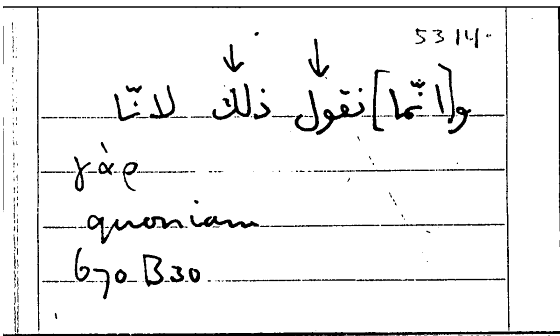 53 14.
و[انّما] نقول ذلك لانّا
γὰρ
quoniam
670 B30